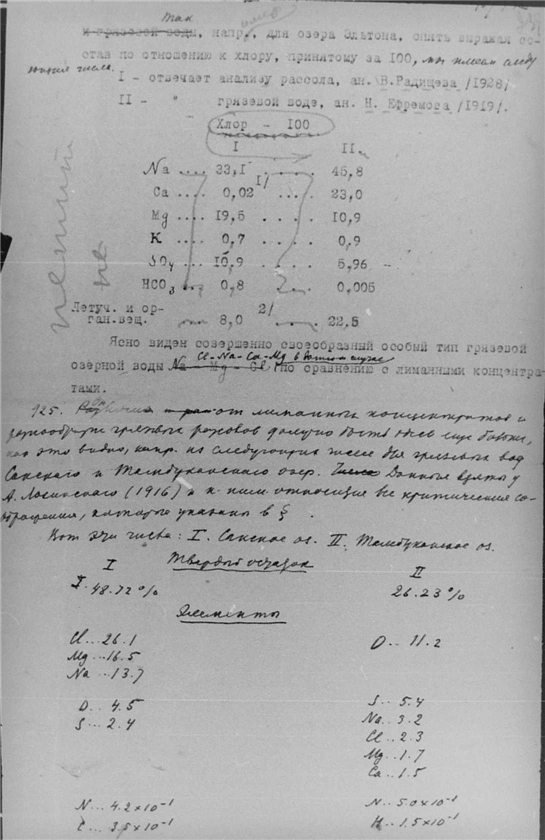 Так
и грязевой воды, напр., для озера Эльтона, опять выражая со-
став по отношению к хлору, принятому за 100, мы имеем следу
ющие числа.
I - отвечает анализу рассола, ан. В.Радищева /1928/
II - " грязевой воде, ан. Н. Ефремова /1919/.
Хлор - 100
I II
Na .... 33,1 ..... 45,8
1/
Ca .... 0,02 .... 23,0
Mg .... 19,5 .... 10,9
K .... 0,7 .... 0,9
SO4 .... 10,9 .... 5,96
HCO3 .... 0,8 .... 0,005
Летуч. и ор-
2/
ган.вещ. 8,0 .... 22,5
петит
не
Ясно виден совершенно своеобразный особый тип грязевой
Cl-Na-Ca-Mg в
озерной воды Na - Mg - Cl по сравнению с лиманными концентра-
тами.
125. от лиманных концентратов и
грязевых должно быть здесь еще
как это видно, напр. из следующих чисел для грязевых вод
Сакского и Тамбуканского озер. Данные взяты у
А. Лосинского (1916) и к ним относящие все критические со-
ображения, которые указаны в §
Вот эти числа: I. Сакское оз. II. Тамбуканское оз.
I Твердый остаток II
48.72% 26.23%
Элементы
Cl...26.1 O.. 11.2
Mg...16.5
Na...13.7
O.. 4.5 S.. 5.4
S.. 2.4 Na.. 3.2
Cl.. 2.3
Mg.. 1.7
Ca.. 1.5
N.. 4.2×10⁻¹ N.. 5.0×10⁻¹
C.. 3.5×10⁻¹ H.. 1.5×10⁻¹